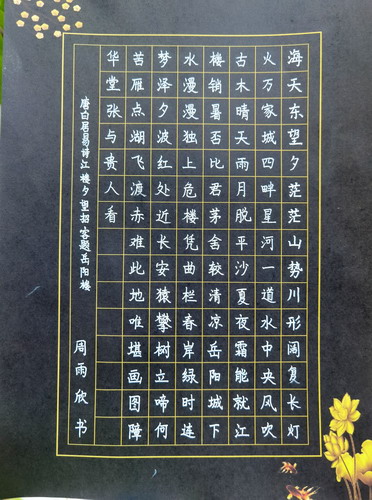 海天东望夕茫茫山势川形阔复长灯
火万家城四畔星河一道水中央风吹
古木晴天雨月脱平沙夏夜霜能就江
楼销暑否比君茅舍较清凉岳阳城下
水漫漫独上危楼凭曲栏春岸绿时连
梦泽夕波红处近长安猿攀树立啼何
苦雁点湖飞渡赤难此地唯堪画图障
华堂张与贵人看
唐白居易诗江楼夕望招客题岳阳楼
周雨欣书